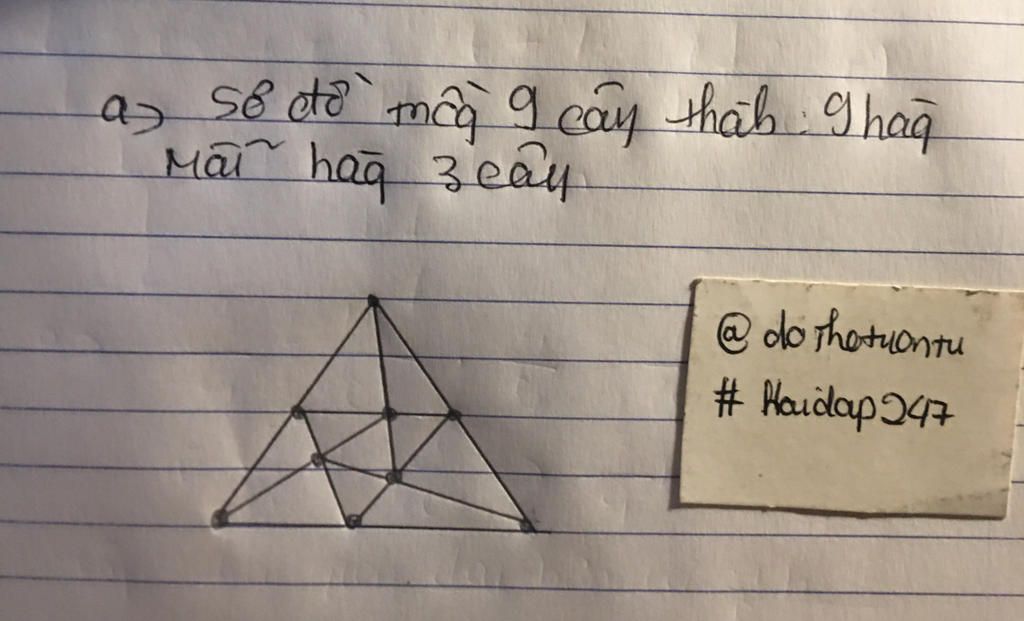 a) Sơ đồ mồg 9 cây thàh: 9 hàg
Mỗi hàg 3 cây
@ dothetuontu
# Hoidap247